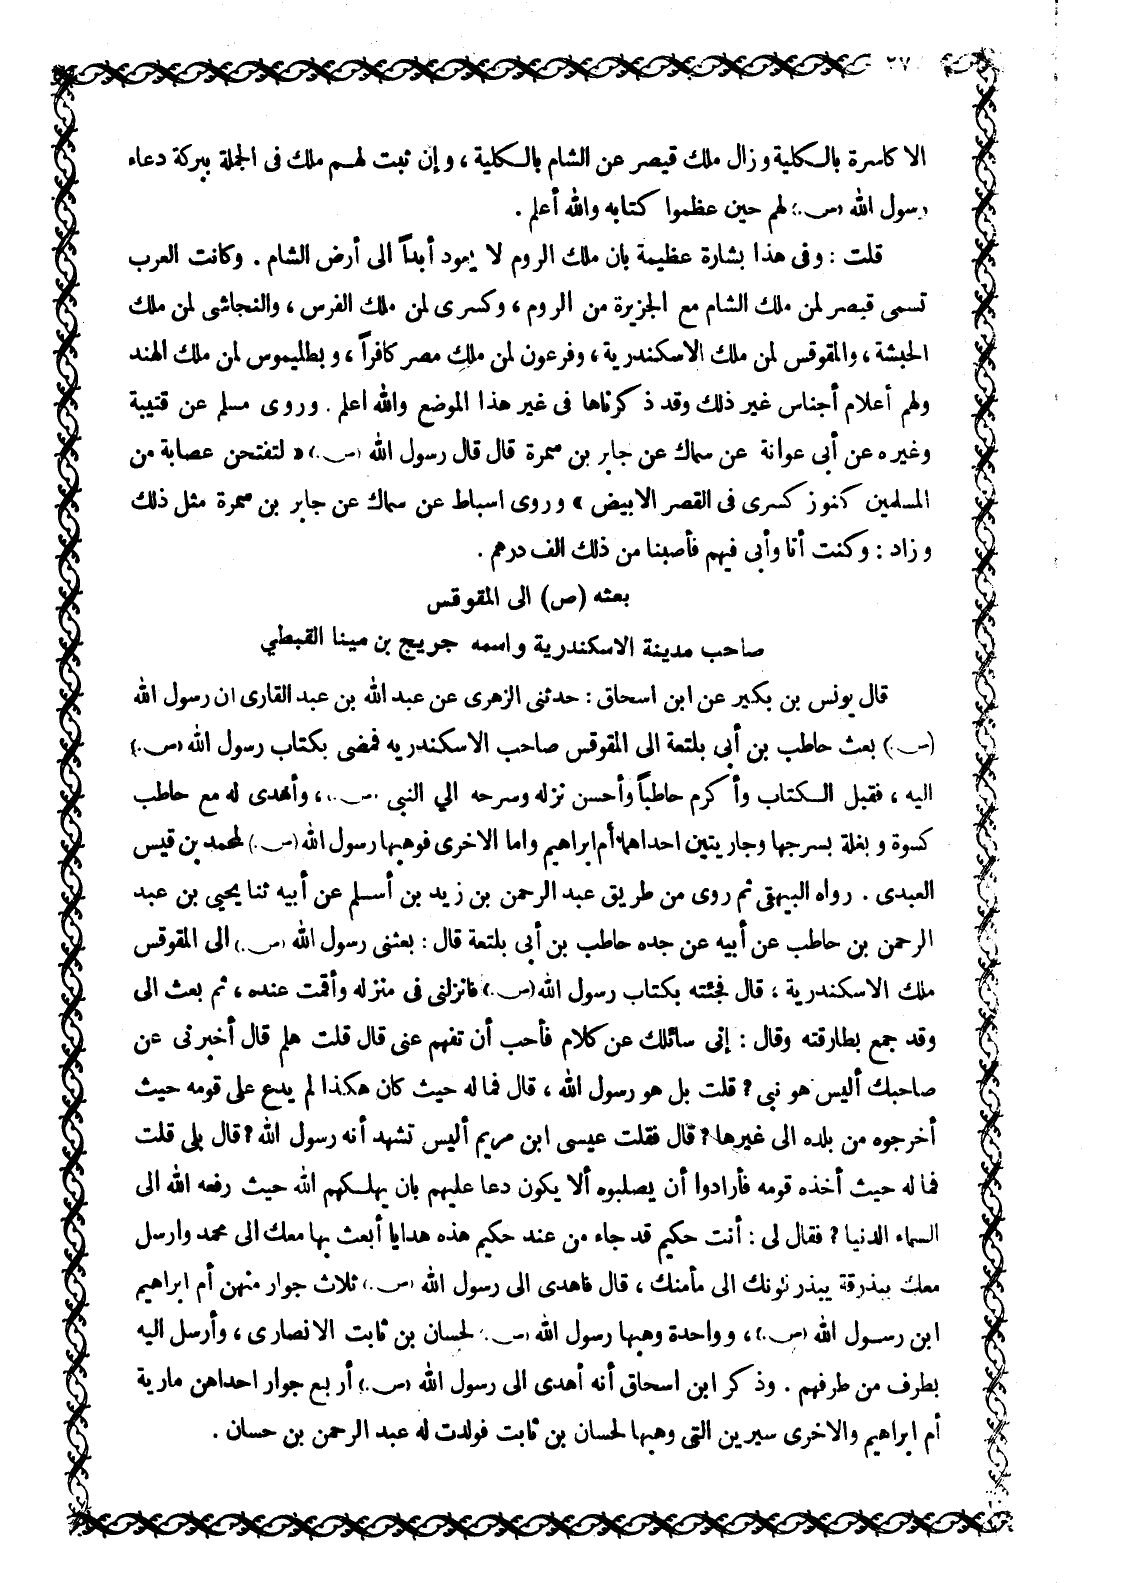 ٢٧
الاكاسرة بالكلية وزال ملك قيصر عن الشام بالكلية ، وإن ثبت لهم ملك فى الجملة ببركة دعاء
رسول الله (ص.) لهم حين عظموا كتابه والله أعلم .
قلت : وفى هذا بشارة عظيمة بان ملك الروم لا يعود أبداً الى أرض الشام . وكانت العرب
تسمى قيصر لمن ملك الشام مع الجزيرة من الروم ، وكسرى لمن ملك الفرس ، والنجاشى لمن ملك
الحبشة ، والمقوقس لمن ملك الاسكندرية ، وفرعون لمن ملك مصر كافراً ، وبطليموس لمن ملك الهند
ولهم أعلام أجناس غير ذلك وقد ذكرناها فى غير هذا الموضع والله اعلم . وروى مسلم عن قتيبة
وغيره عن أبى عوانة عن سماك عن جابر بن سمرة قال قال رسول الله (ص.) « لتفتحن عصابة من
المسلمين كنوز كسرى فى القصر الابيض » وروى اسباط عن سماك عن جابر بن سمرة مثل ذلك
وزاد : وكنت أنا وأبى فيهم فأصبنا من ذلك الف درهم .
بعثه (ص) الى المقوقس
صاحب مدينة الاسكندرية واسمه جريج بن مينا القبطي
قال يونس بن بكير عن ابن اسحاق : حدثنى الزهرى عن عبد الله بن عبد القارى ان رسول الله
(ص.) بعث حاطب بن أبى بلتعة الى المقوقس صاحب الاسكندريه فمضى بكتاب رسول الله (ص.)
اليه ، فقبل الكتاب وأكرم حاطباً وأحسن نزله وسرحه الي النبي (ص.) ، وأهدى له مع حاطب
كسوة وبغلة بسرجها وجاريتين احداهما أم ابراهيم واما الاخرى فوهبها رسول الله (ص.) لمحمد بن قيس
العبدى . رواه البيهقى ثم روى من طريق عبد الرحمن بن زيد بن أسلم عن أبيه ثنا يحيى بن عبد
الرحمن بن حاطب عن أبيه عن جده حاطب بن أبى بلتعة قال : بعثنى رسول الله (ص.) الى المقوقس
ملك الاسكندرية ، قال فجئته بكتاب رسول الله (ص.) فانزلنى فى منزله وأقمت عنده ، ثم بعث الى
وقد جمع بطارقته وقال : إنى سائلك عن كلام فأحب أن تفهم عنى قال قلت هلم قال أخبرنى عن
صاحبك أليس هو نبى ؟ قلت بل هو رسول الله ، قال فما له حيث كان هكذا لم يدع على قومه حيث
أخرجوه من بلده الى غيرها ؟ قال فقلت عيسى ابن مريم أليس تشهد أنه رسول الله ؟ قال بلى قلت
فما له حيث أخذه قومه فأرادوا أن يصلبوه ألا يكون دعا عليهم بان يهلكهم الله حيث رفعه الله الى
السماء الدنيا ؟ فقال لى : أنت حكيم قد جاء من عند حكيم هذه هدايا أبعث بها معك الى محمد وارسل
معك ببذرقة يبذرقونك الى مأمنك ، قال فاهدى الى رسول الله (ص.) ثلاث جوار منهن أم ابراهيم
ابن رسول الله (ص.) ، وواحدة وهبها رسول الله (ص.) لحسان بن ثابت الانصارى ، وأرسل اليه
بطرف من طرفهم . وذكر ابن اسحاق أنه أهدى الى رسول الله (ص.) أربع جوار احداهن مارية
أم ابراهيم والاخرى سيرين التى وهبها لحسان بن ثابت فولدت له عبد الرحمن بن حسان .